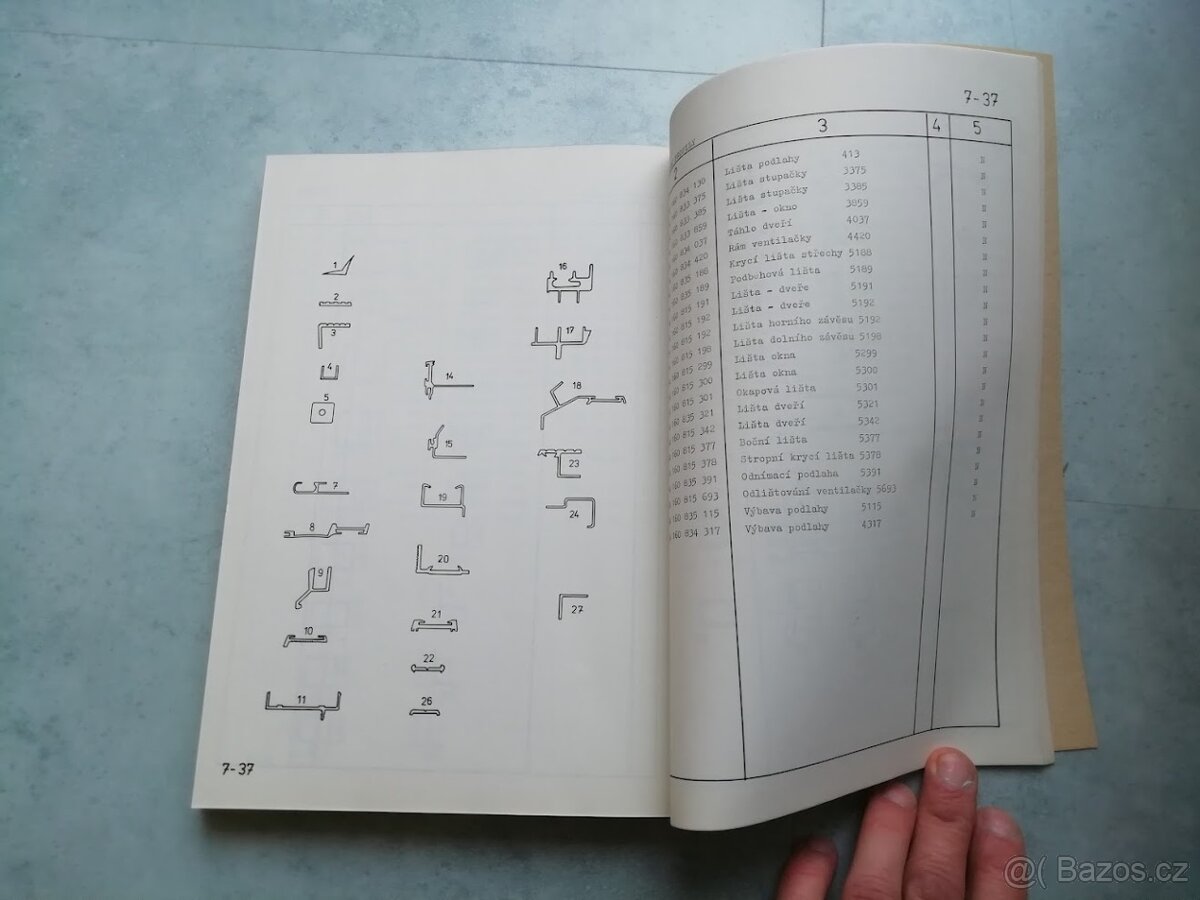 1
2
3
4
5
7
8
9
10
11
14
15
19
20
21
22
26
16
17
18
23
24
27
7-37
7-37
2 3 4 5
160 834 130 Lišta podlahy 413 N
160 833 375 Lišta stupačky 3375 N
160 833 385 Lišta stupačky 3385 N
160 833 859 Lišta - okno 3859 N
160 834 037 Táhlo dveří 4037 N
160 834 420 Rám ventilačky 4420 N
160 835 188 Krycí lišta střechy 5188 N
160 835 189 Podbehová lišta 5189 N
160 815 191 Lišta - dveře 5191 N
160 815 192 Lišta - dveře 5192 N
160 815 192 Lišta horního závěsu 5192 N
160 815 198 Lišta dolního závěsu 5198 N
160 815 299 Lišta okna 5299 N
160 815 300 Lišta okna 5300 N
160 815 301 Okapová lišta 5301 N
160 835 321 Lišta dveří 5321 N
160 815 342 Lišta dveří 5342 N
160 815 377 Boční lišta 5377 N
160 815 378 Stropní krycí lišta 5378 N
160 835 391 Odnímací podlaha 5391 N
160 815 693 Odlištování ventilačky 5693 N
160 835 115 Výbava podlahy 5115 N
160 834 317 Výbava podlahy 4317
@( Bazos.cz